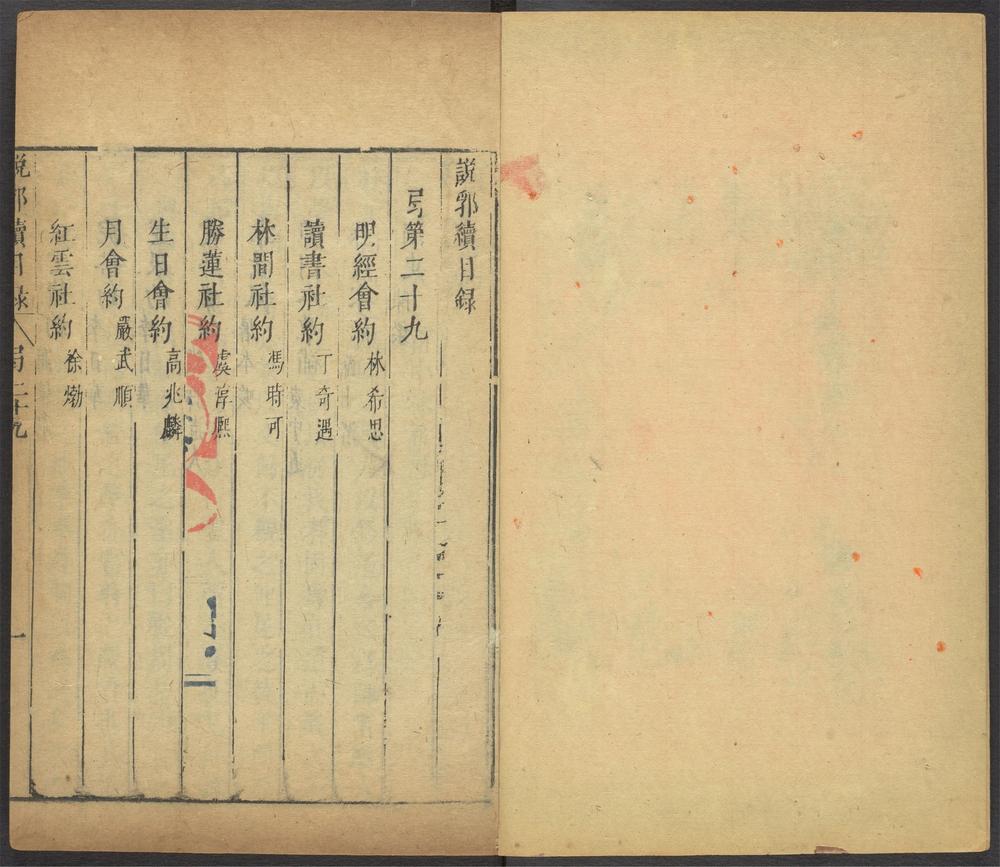 說郛續目錄
弓第二十九
明經會約 林希恩
讀書社約 丁奇遇
林間社約 馮時可
勝蓮社約 虞淳熙
生日會約 高兆麟
月會約 嚴武順
紅雲社約 徐𤊹
說郛續目錄 弓二十九 一